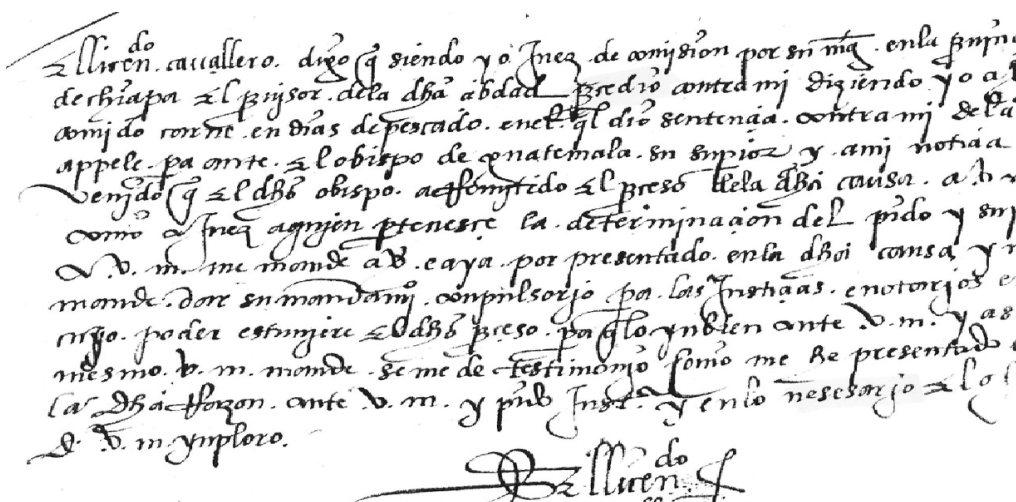 El licen.do cavallero. digo q siendo yo Juez de comision por su mg. en la
de chiapa El pvisor. dela dha abdad pcedio contra mi diziendo yo a
comido carne. en dias de pescado. en el ql dio sentencia. contra mi dela
appele. pa ante. El obispo de guatemala. su supior y. a mi noticia
venido q El dho obispo. a Remitido El pceso dela dha causa. a v
como a Juez a quien ptenesce la determinacion del
A v. m. me mande a v. e aya. por presentado. en la dha causa y
mande. dar su mandami.o conpulsorio pa. las Justicias. e notarios e
cuyo. poder estuviere El dho pceso. pa q lo ynbien ante v. m. y as
mesmo. v. m. mande. se me de testimonio como me he presentado
la dha Razon. ante v. m. y y en lo nescesario El
d. v. m. ynploro.
El licen.do